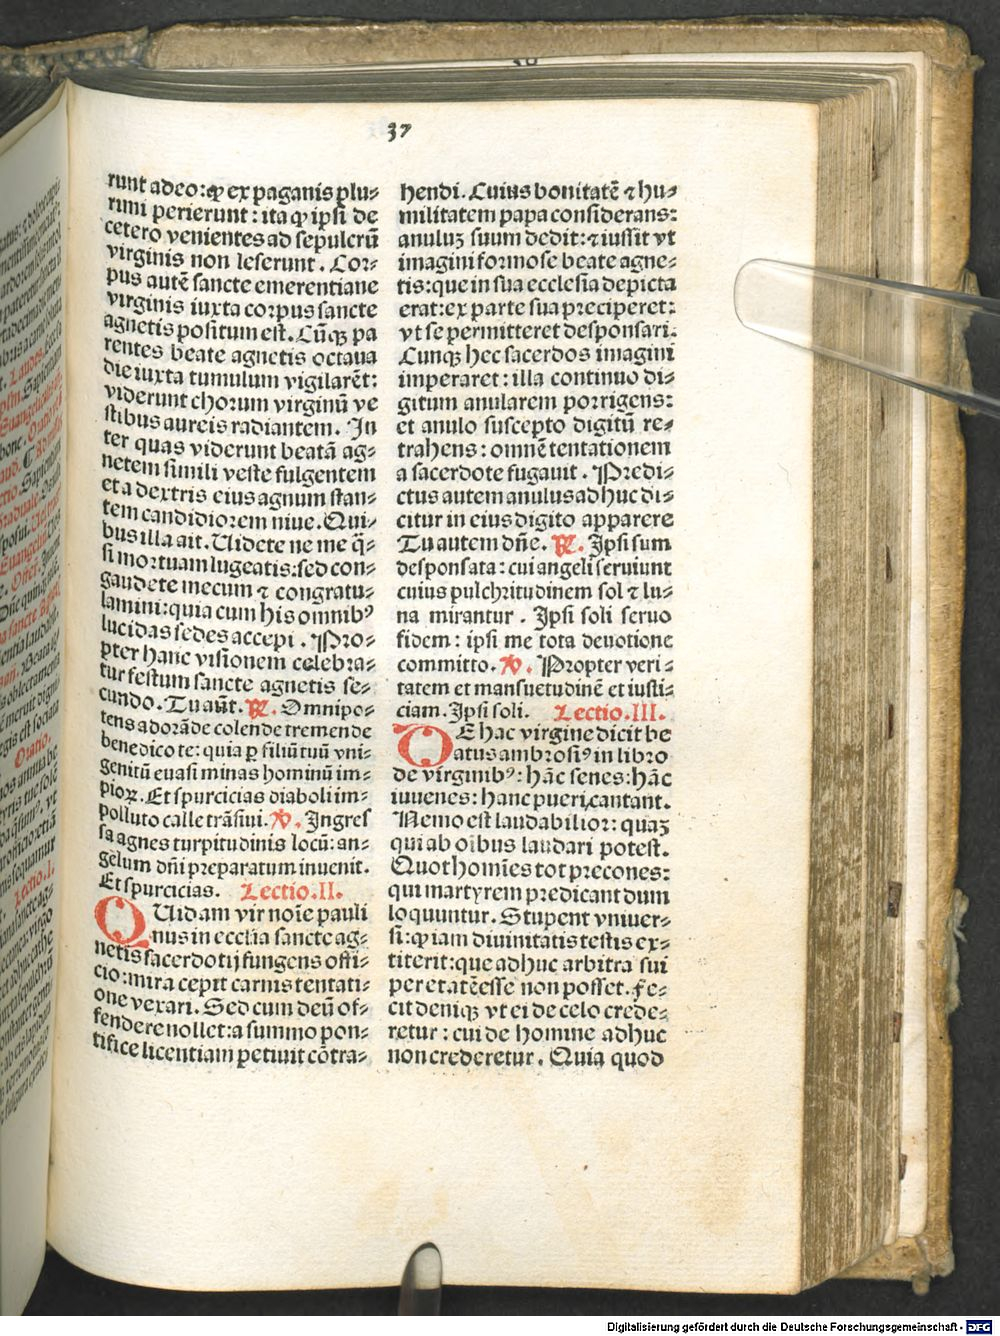 37
runt adeo: ꝙ ex paganis plu⸗
rimi perierunt: ita ꝙ ipsi de
cetero venientes ad sepulcrū
virginis non leserunt. Cor⸗
pus autē sancte emerentiane
virginis iuxta corpus sancte
agnetis positum est. Cūqꝫ pa
rentes beate agnetis octaua
die iuxta tumulum vigilarēt:
viderunt chorum virginū ve
stibus aureis radiantem. In
ter quas viderunt beatā ag⸗
netem simili veste fulgentem
et a dextris eius agnum stan⸗
tem candidiorem niue. Qui⸗
bus illa ait. Uidete ne me q̄⸗
si mortuam lugeatis: sed con⸗
gaudete mecum ⁊ congratu⸗
lamini: quia cum his omnibꝰ
lucidas sedes accepi. Pro⸗
pter hanc visionem celebra⸗
tur festum sancte agnetis se⸗
cundo. Tu aūt. ℟. Omnipo⸗
tens adorāde colende tremende
benedico te: quia ꝑ filiū tuū vni⸗
genitū euasi minas hominū im⸗
pioꝝ. Et spurcicias diaboli im⸗
polluto calle trāsiui. ℣. Ingres
sa agnes turpitudinis locū: an⸗
gelum dn̄i preparatum inuenit.
Et spurcicias. Lectio.II.
QUidam vir noīe pauli
nus in ecclīa sancte ag⸗
netis sacerdotij fungens offi⸗
cio: mira cepit carnis tentati⸗
one vexari. Sed cum deū of⸗
fendere nollet: a summo pon⸗
tifice licentiam petiuit cōtra⸗
hendi. Cuius bonitatē ⁊ hu⸗
militatem papa considerans:
anuluꝫ suum dedit: ⁊ iussit vt
imagini formose beate agne⸗
tis: que in sua ecclesia depicta
erat: ex parte sua preciperet:
vt se permitteret desponsari.
Cunqꝫ hec sacerdos imagini
imperaret: illa continuo di⸗
gitum anularem porrigens:
et anulo suscepto digitū re⸗
trahens: omnē tentationem
a sacerdote fugauit. Predi⸗
ctus autem anulus adhuc di⸗
citur in eius digito apparere
Tu autem dn̄e. ℟. Ipsi sum
desponsata: cui angeli seruiunt
cuius pulchritudinem sol ⁊ lu⸗
na mirantur. Ipsi soli seruo
fidem: ipsi me tota deuotione
committo. ℣. Propter veri⸗
tatem et mansuetudinē et iusti⸗
ciam. Ipsi soli. Lectio.III.
DE hac virgine dicit be
atus ambrosiꝰ in libro
de virginibꝰ: hāc senes: hāc
iuuenes: hanc pueri cantant.
Nemo est laudabilior: quaꝫ
qui ab oībus laudari potest.
Quot homīes tot precones:
qui martyrem predicant dum
loquuntur. Stupent vniuer⸗
si: ꝙ iam diuinitatis testis ex⸗
titerit: que adhuc arbitra sui
per etatē esse non posset. Fe⸗
cit deniqꝫ vt ei de celo crede⸗
retur: cui de homine adhuc
non crederetur. Quia quod
Digitalisierung gefördert durch die Deutsche Forschungsgemeinschaft - DFG